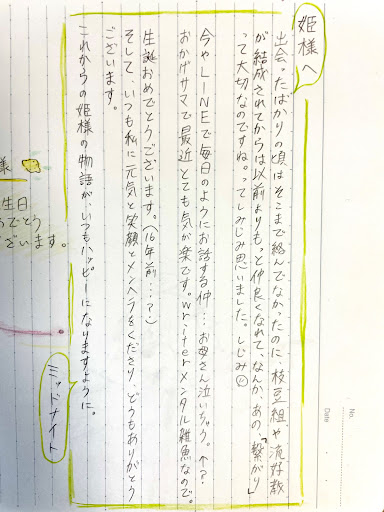 姫様へ
出会ったばかりの頃はそこまで絡んでなかったのに、枝豆組や流好教
が結成されてからは以前よりもっと仲良くなれて、なんか、あの、「繋がり」
って大切なのですね。ってしみじみ思いました。しじみ
今やLINEで毎日のようにお話する仲…お母さん泣いちゃう。↑?
おかげサマで最近とても気が楽です。writerメンタル雑魚なので。
生誕おめでとうございます。(16年前…?)
そして、いつも私に元気と笑顔とメンヘラをくださり、どうもありがとう
ございます。
これからの姫様の物語が、いつもハッピーになりますように。
ミッドナイト
様
生日
めでとう
ざいます。
No.
Date